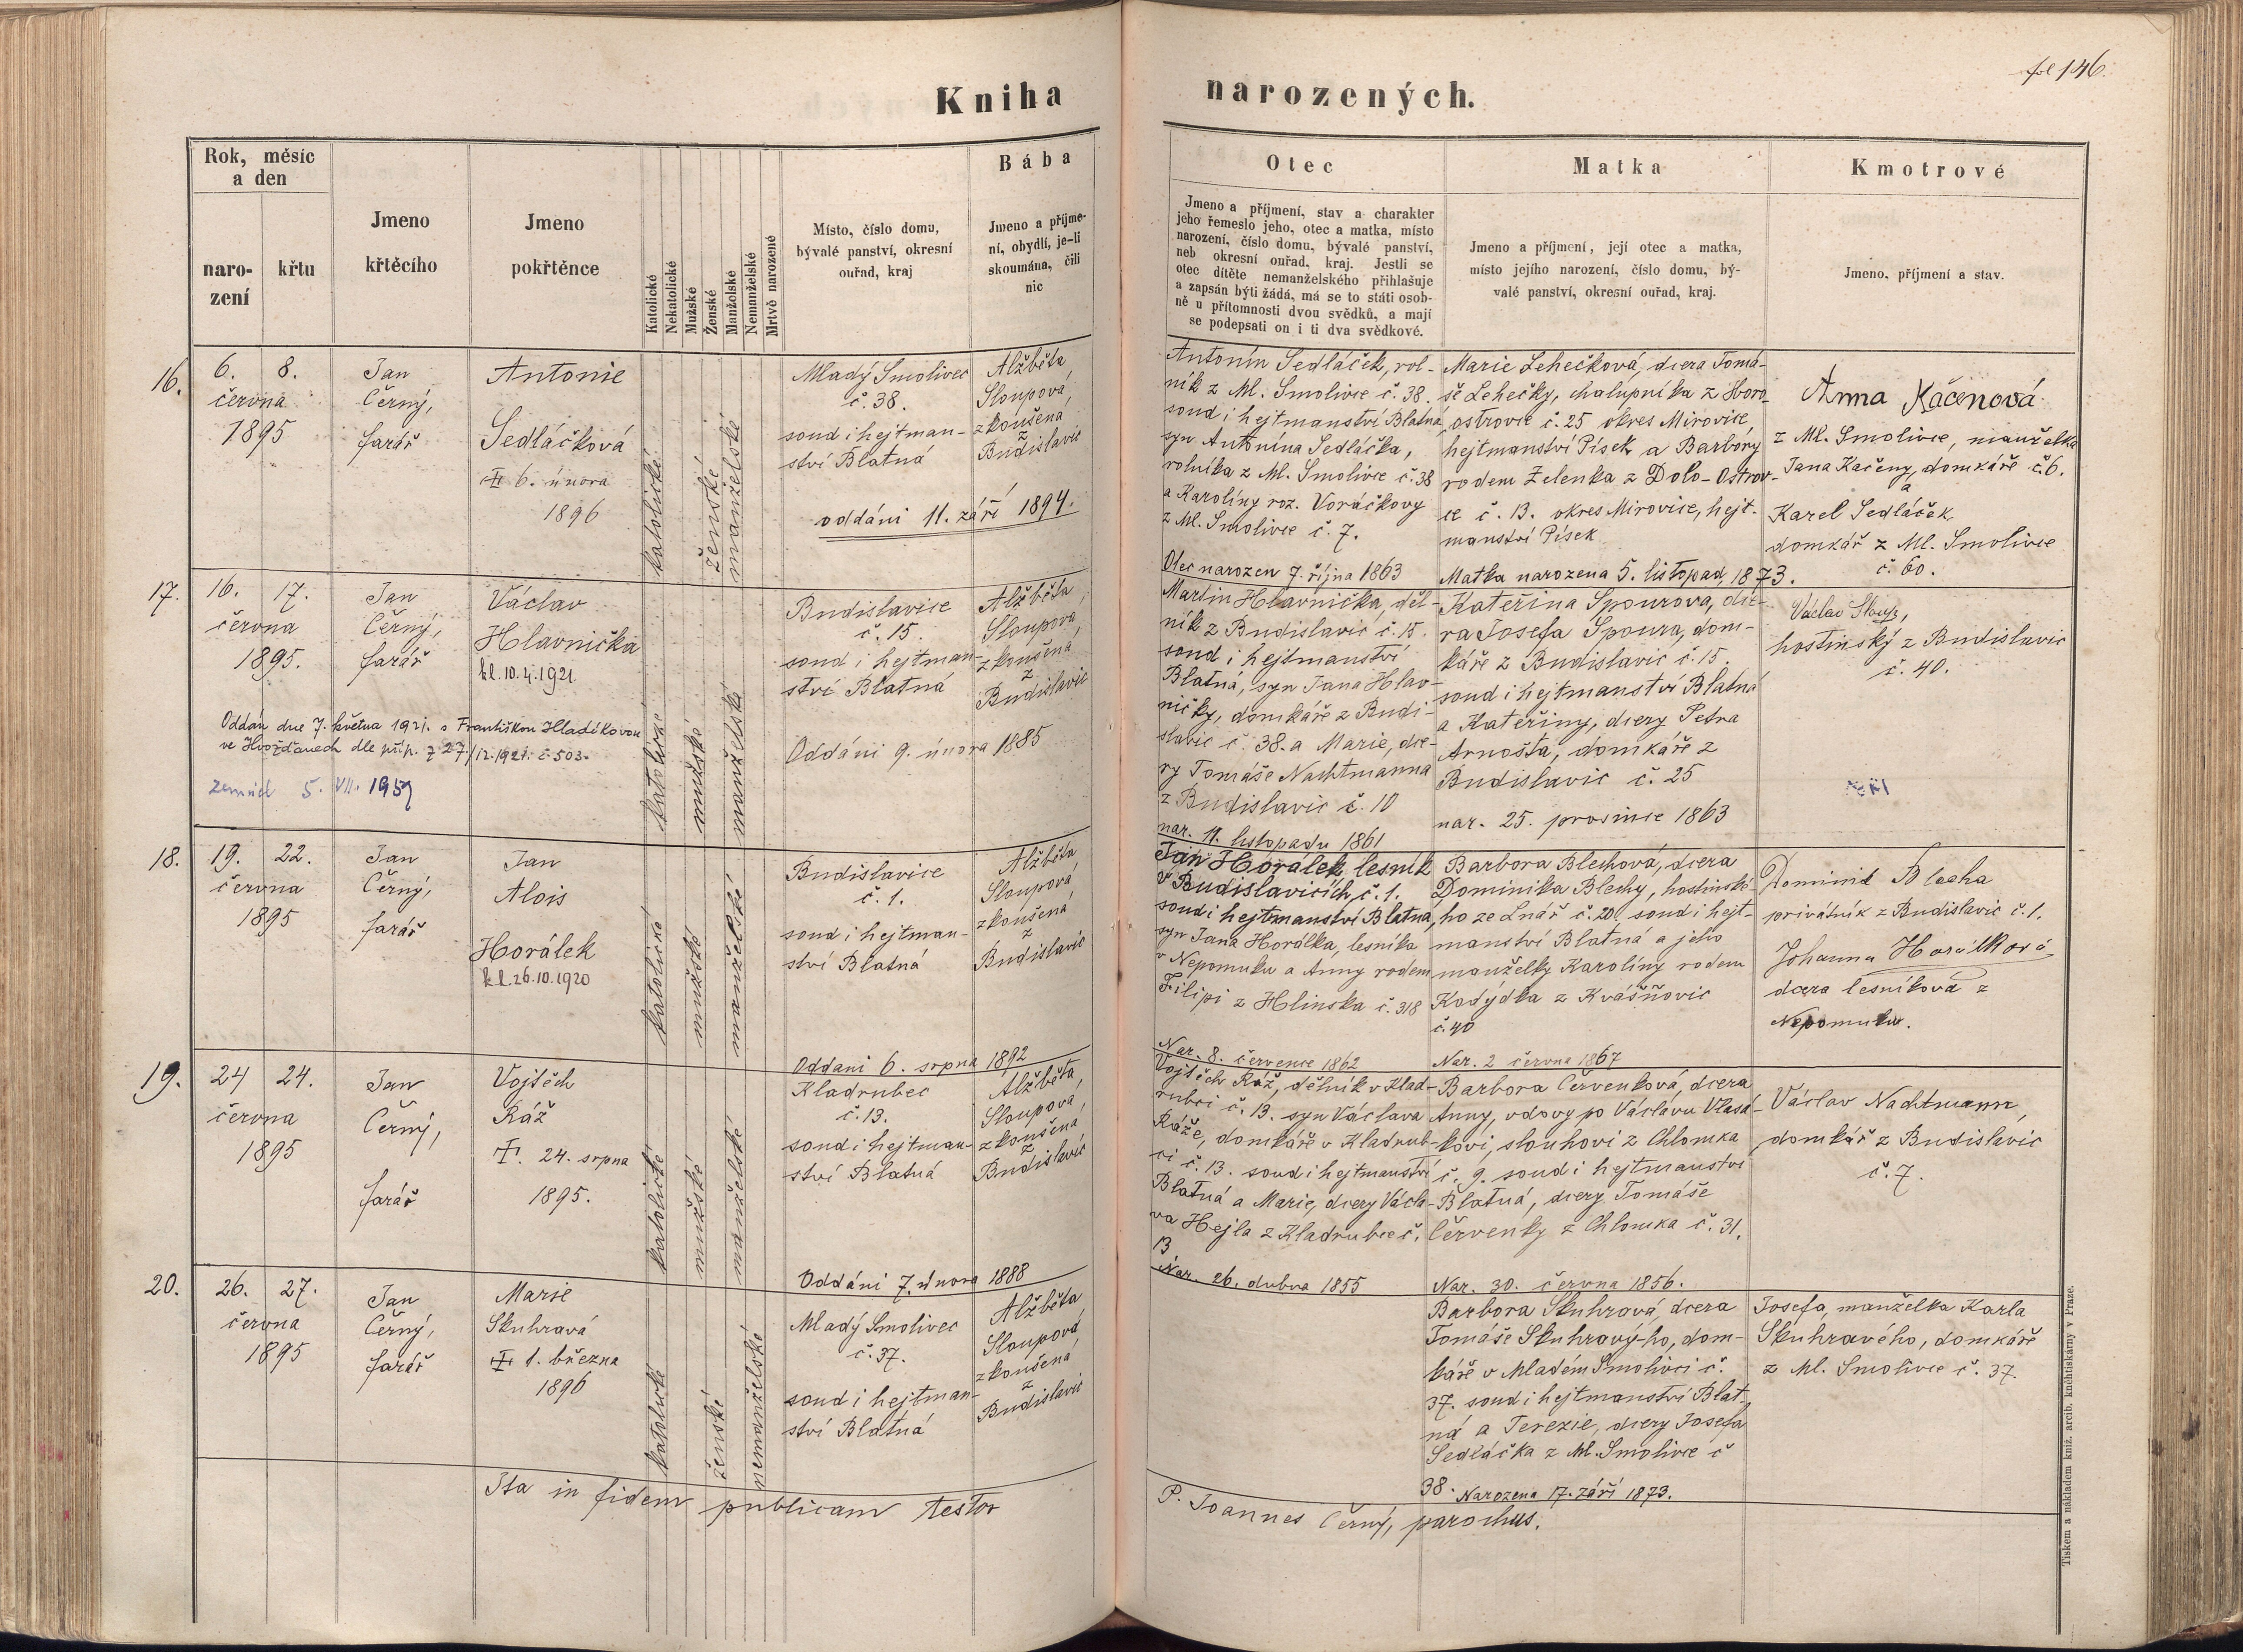 fol 146.
Kniha narozených.
Rok, měsíc
a den
naro-
zení
křtu
Jmeno
křtěcího
Jmeno
pokřtěnce
Katolické
Nekatolické
Mužské
Ženské
Manželské
Nemanželské
Mrtvě narozené
Místo, číslo domu,
bývalé panství, okresní
ouřad, kraj
Bába
Jmeno a příjme-
ní, obydlí, je-li
skoumána, čili
nic
Otec
Jmeno a příjmení, stav a charakter
jeho řemeslo jeho, otec a matka, místo
narození, číslo domu, bývalé panství,
neb okresní ouřad, kraj. Jestli se
otec dítěte nemanželského přihlašuje
a zapsán býti žádá, má se to státi osob-
ně u přítomnosti dvou svědků, a mají
se podepsati on i ti dva svědkové.
Matka
Jmeno a příjmení, její otec a matka,
místo jejího narození, číslo domu, bý-
valé panství, okresní ouřad, kraj.
Kmotrové
Jmeno, příjmení a stav.
16.
6. 8.
června
1895
Jan
Černý,
farář
Antonie
Sedláčková
6. února
1896
katolické
ženské
manželské
Mladý Smolivec
č. 38.
soud i hejtman-
ství Blatná
oddáni 11. září 1894.
Alžběta
Sloupová,
zkoušená
z
Budislavic
Antonín Sedláček, rol-
ník z Ml. Smolivce č. 38.
soud i hejtmanství Blatná,
syn Antonína Sedláčka,
rolníka z Ml. Smolivce č. 38
a Karolíny roz. Voráčkovy
z Ml. Smolivce č. 7.
Otec narozen 7. října 1863
Marie Lehečková, dcera Tomá-
še Lehečky, chalupníka z Horo-
ostrovce č. 25 okres Mirovice,
hejtmanství Písek a Barbory
rodem Zelenka z Dolo-Ostrov-
ce č. 13. okres Mirovice, hejt-
manství Písek
Matka narozena 5. listopad. 1873.
Anna Kačenová
z Ml. Smolivce, manželka
Jana Kačeny, domkáře č. 6.
a
Karel Sedláček
domkář z Ml. Smolivce
č. 60.
17.
16. 17.
června
1895.
Jan
Černý,
farář
Václav
Hlavnička
kl. 10.4.1921
Oddán dne 7. května 1921. s Františkou Hladíkovou
ve Hvožďanech dle příp. z 27./12.1921. č. 503.
zemřel 5. VII. 1959
katolické
mužské
manželské
Budislavice
č. 15.
soud i hejtman-
ství Blatná
Oddáni 9. února 1885
Alžběta,
Sloupova,
zkoušená
z
Budislavic
Martin Hlavnička, děl-
ník z Budislavic č. 15.
soud i hejtmanství
Blatná, syn Jana Hlav-
ničky, domkáře z Budi-
slavic č. 38. a Marie, dce-
ry Tomáše Nachtmanna
z Budislavic č. 10
nar. 11. listopadu 1861
Kateřina Spourova, dce-
ra Josefa Spoura, dom-
káře z Budislavic č. 15.
soud i hejtmanství Blatná
a Kateřiny, dcery Petra
Arnošta, domkáře z
Budislavic č. 25
nar. 25. prosince 1863
Václav Sloup,
hostinský z Budislavic
č. 40.
18.
19. 22.
června
1895
Jan
Černý,
farář
Jan
Alois
Horálek
kl. 26.10.1920
katolické
mužské
manželské
Budislavice
č. 1.
soud i hejtman-
ství Blatná
Oddáni 6. srpna 1892
Alžběta
Sloupová,
zkoušená
z
Budislavic
Jan Horálek, lesník
v Budislavicích č. 1.
soud i hejtmanství Blatna,
syn Jana Horálka, lesníka
v Nepomuku a Anny rodem
Filipi z Hlinska č. 318
Nar. 8. července 1862
Barbora Blechová, dcera
Dominika Blechy, hostinské-
ho ze Lnář č. 20. soud i hejt-
manství Blatná a jeho
manželky Karolíny rodem
Kadýdka z Kvášňovic
č. 40
Nar. 2 června 1867
Dominik Blecha
privátník z Budislavic č. 1.
Johanna Horálková
dcera lesníková z
Nepomuku.
19.
24 24.
června
1895
Jan
Černý,
farář
Vojtěch
Ráž
†. 24. srpna
1895.
katolické
mužské
manželské
Kladrubec
č. 13.
soud i hejtman-
ství Blatná
Oddáni 7. února 1888
Alžběta,
Sloupova,
zkoušená
z
Budislavic
Vojtěch Ráž, dělník v Klad-
rubci č. 13. syn Václava
Ráže, domkáře v Kladrub-
ci č. 13. soud i hejtmanství
Blatná a Marie, dcery Václa-
va Hejla z Kladrubce č.
13
Nar. 26. dubna 1855
Barbora Červenková, dcera
Anny, vdovy po Václavu Vlasá-
kovi, slouhovi z Chlomka
č. 9. soud i hejtmanství
Blatná, dcery Tomáše
Červenky z Chlomka č. 31.
Nar. 30. června 1856.
Václav Nachtmann,
domkář z Budislavic
č. 7.
20.
26. 27.
června
1895
Jan
Černý,
farář
Marie
Skuhravá
1. března
1896
katolické
ženské
nemanželské
Mladý Smolivec
č. 37.
soud i hejtman-
ství Blatná
Alžběta
Sloupová,
zkoušená
z
Budislavic
Barbora Skuhrová, dcera
Tomáše Skuhravý-ho, dom-
káře v Mladém Smolivci č.
37. soud i hejtmanství Blat-
ná a Terezie, dcery Josefa
Sedláčka z Ml. Smolivce č
38. Narozena 17. září 1873.
Josefa, manželka Karla
Skuhravého, domkáře
z Ml. Smolivce č. 37.
Ita in fidem publicam testor
P. Joannes Černý, parochus.
Tiskem a nákladem kníž. arcib. kněhtiskárny v Praze.